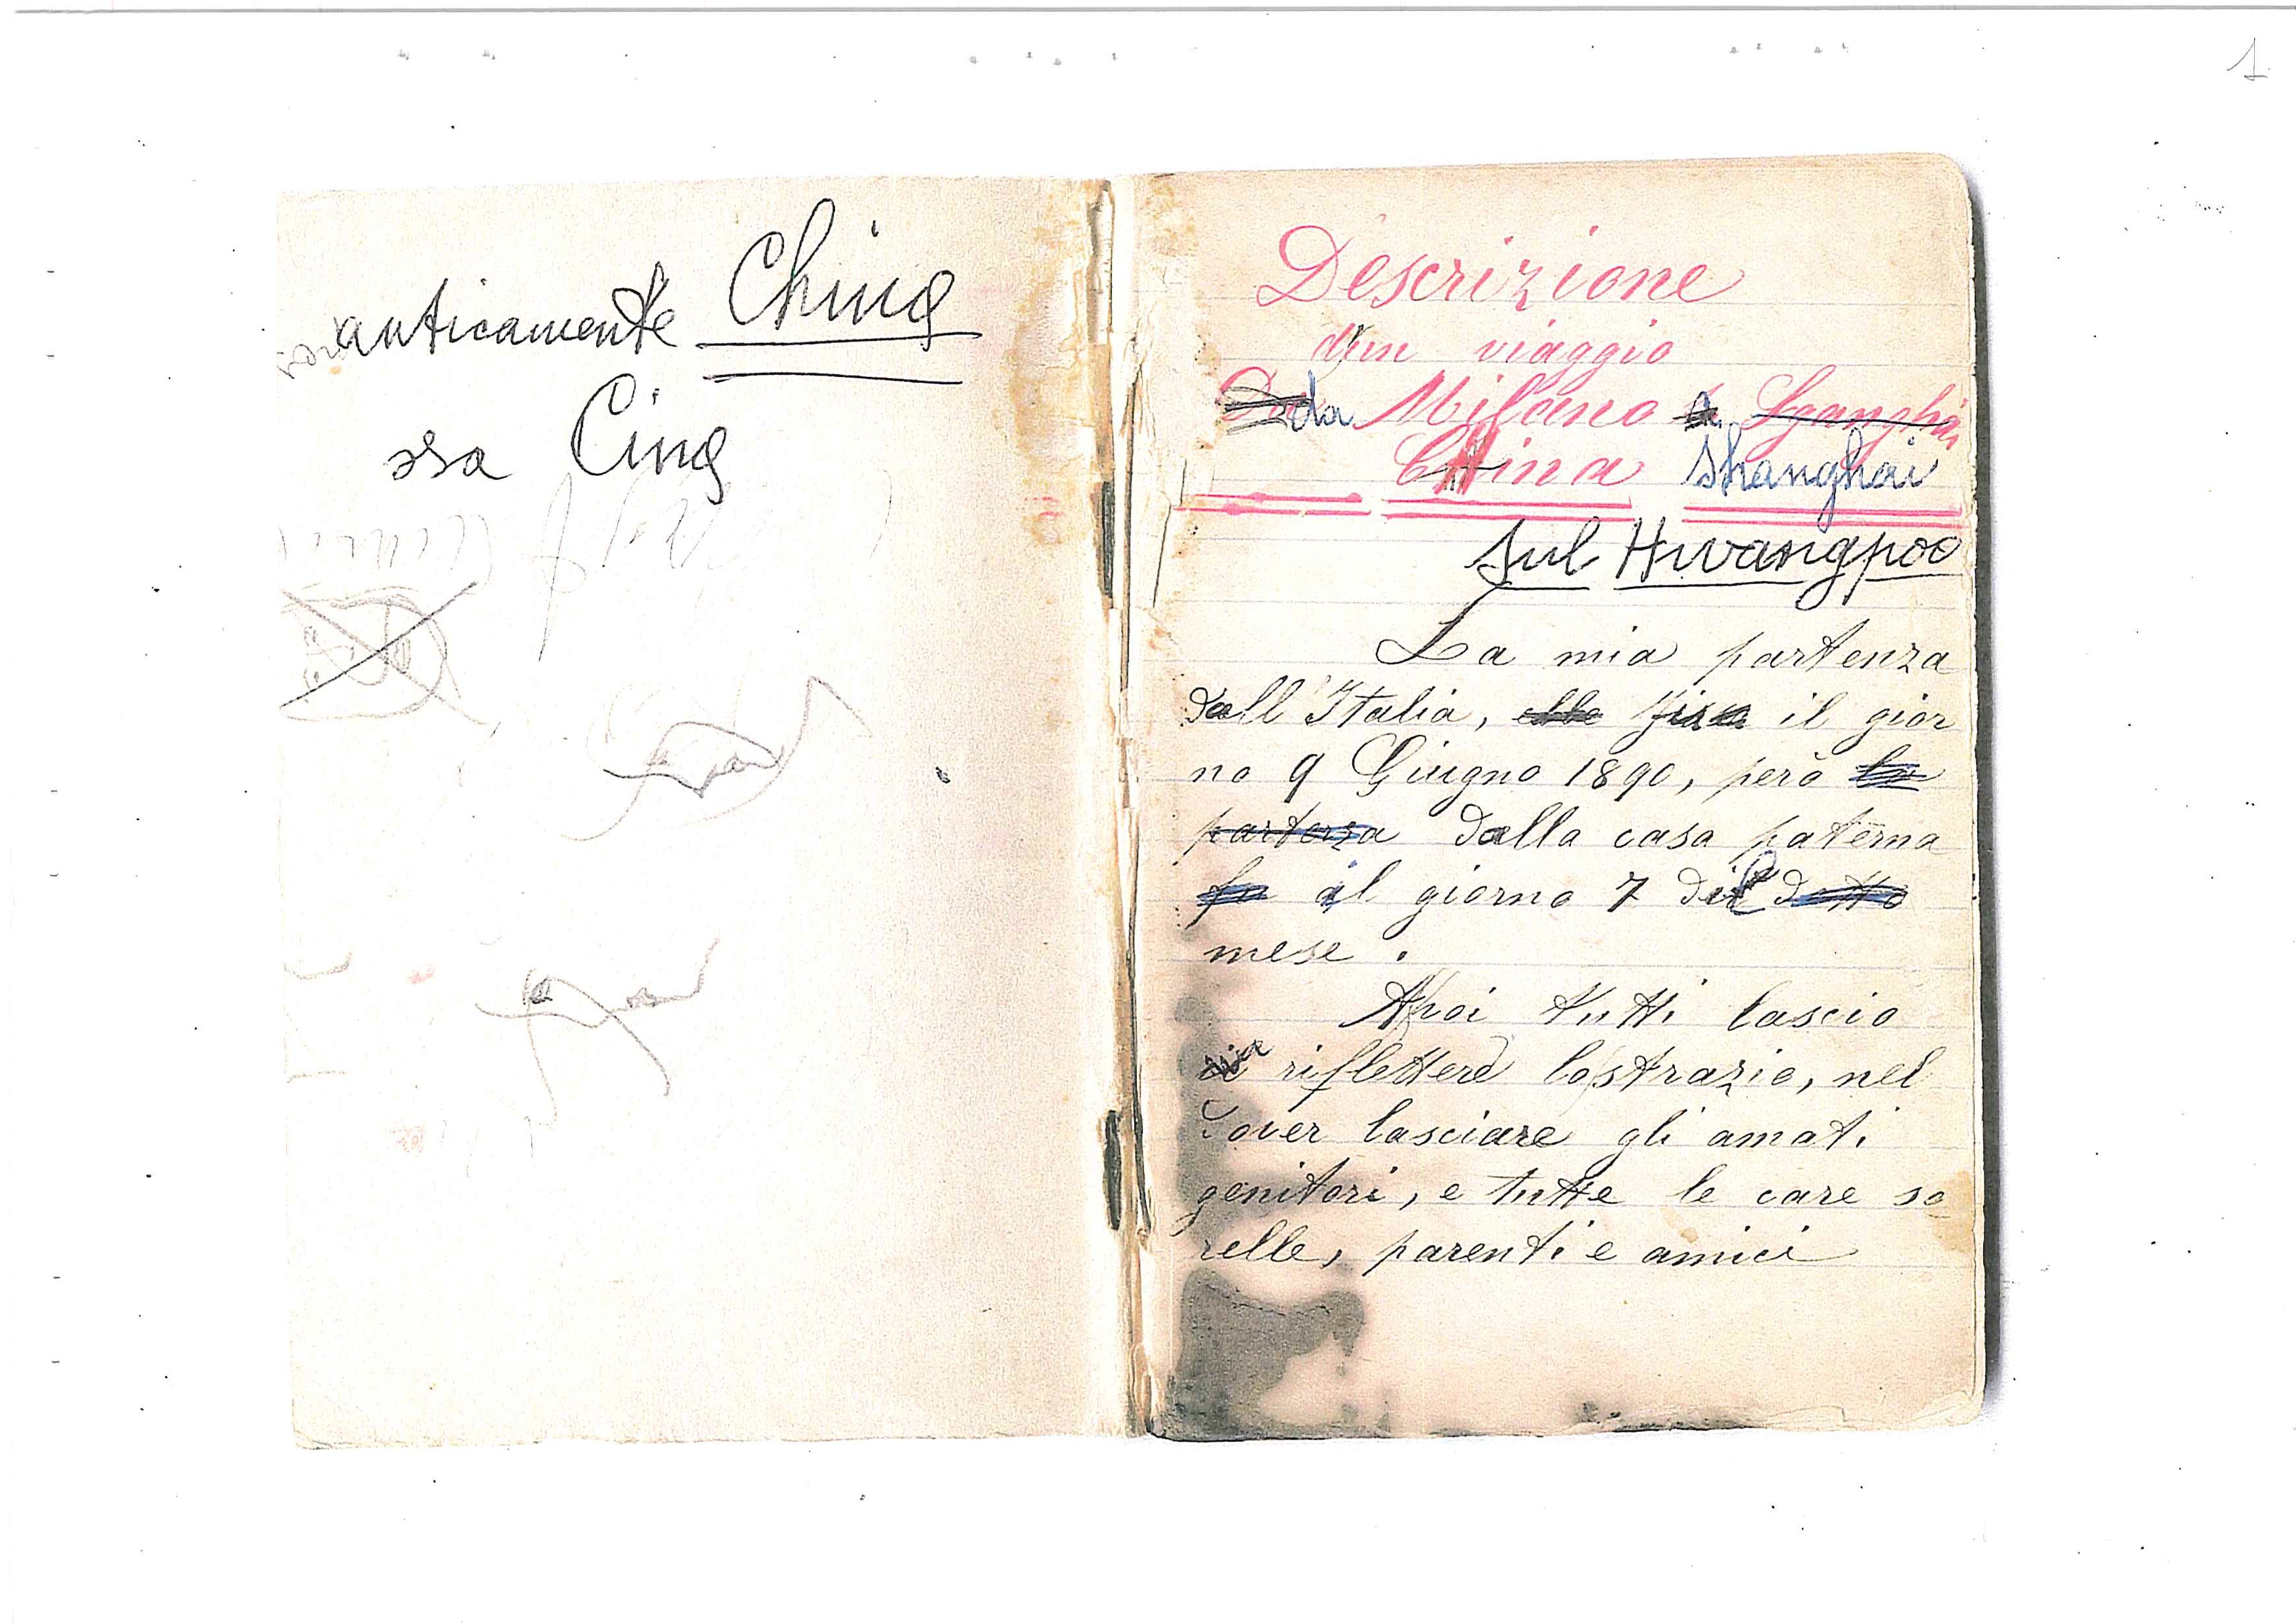 1
anticamente Ching
ora Cing
Descrizione
d'un viaggio
da Milano a Sganghai
China Shanghai
sul Hwangpoo
La mia partenza
dall'Italia, ebbe fissa il gior
no 9 Giugno 1890, però la
partenza dalla casa paterna
fu il giorno 7 del detto
mese.
A poi tutti lascio
riflettere lo strazio, nel
dover lasciare gli amati
genitori, e tutte le care so
relle, parenti e amici